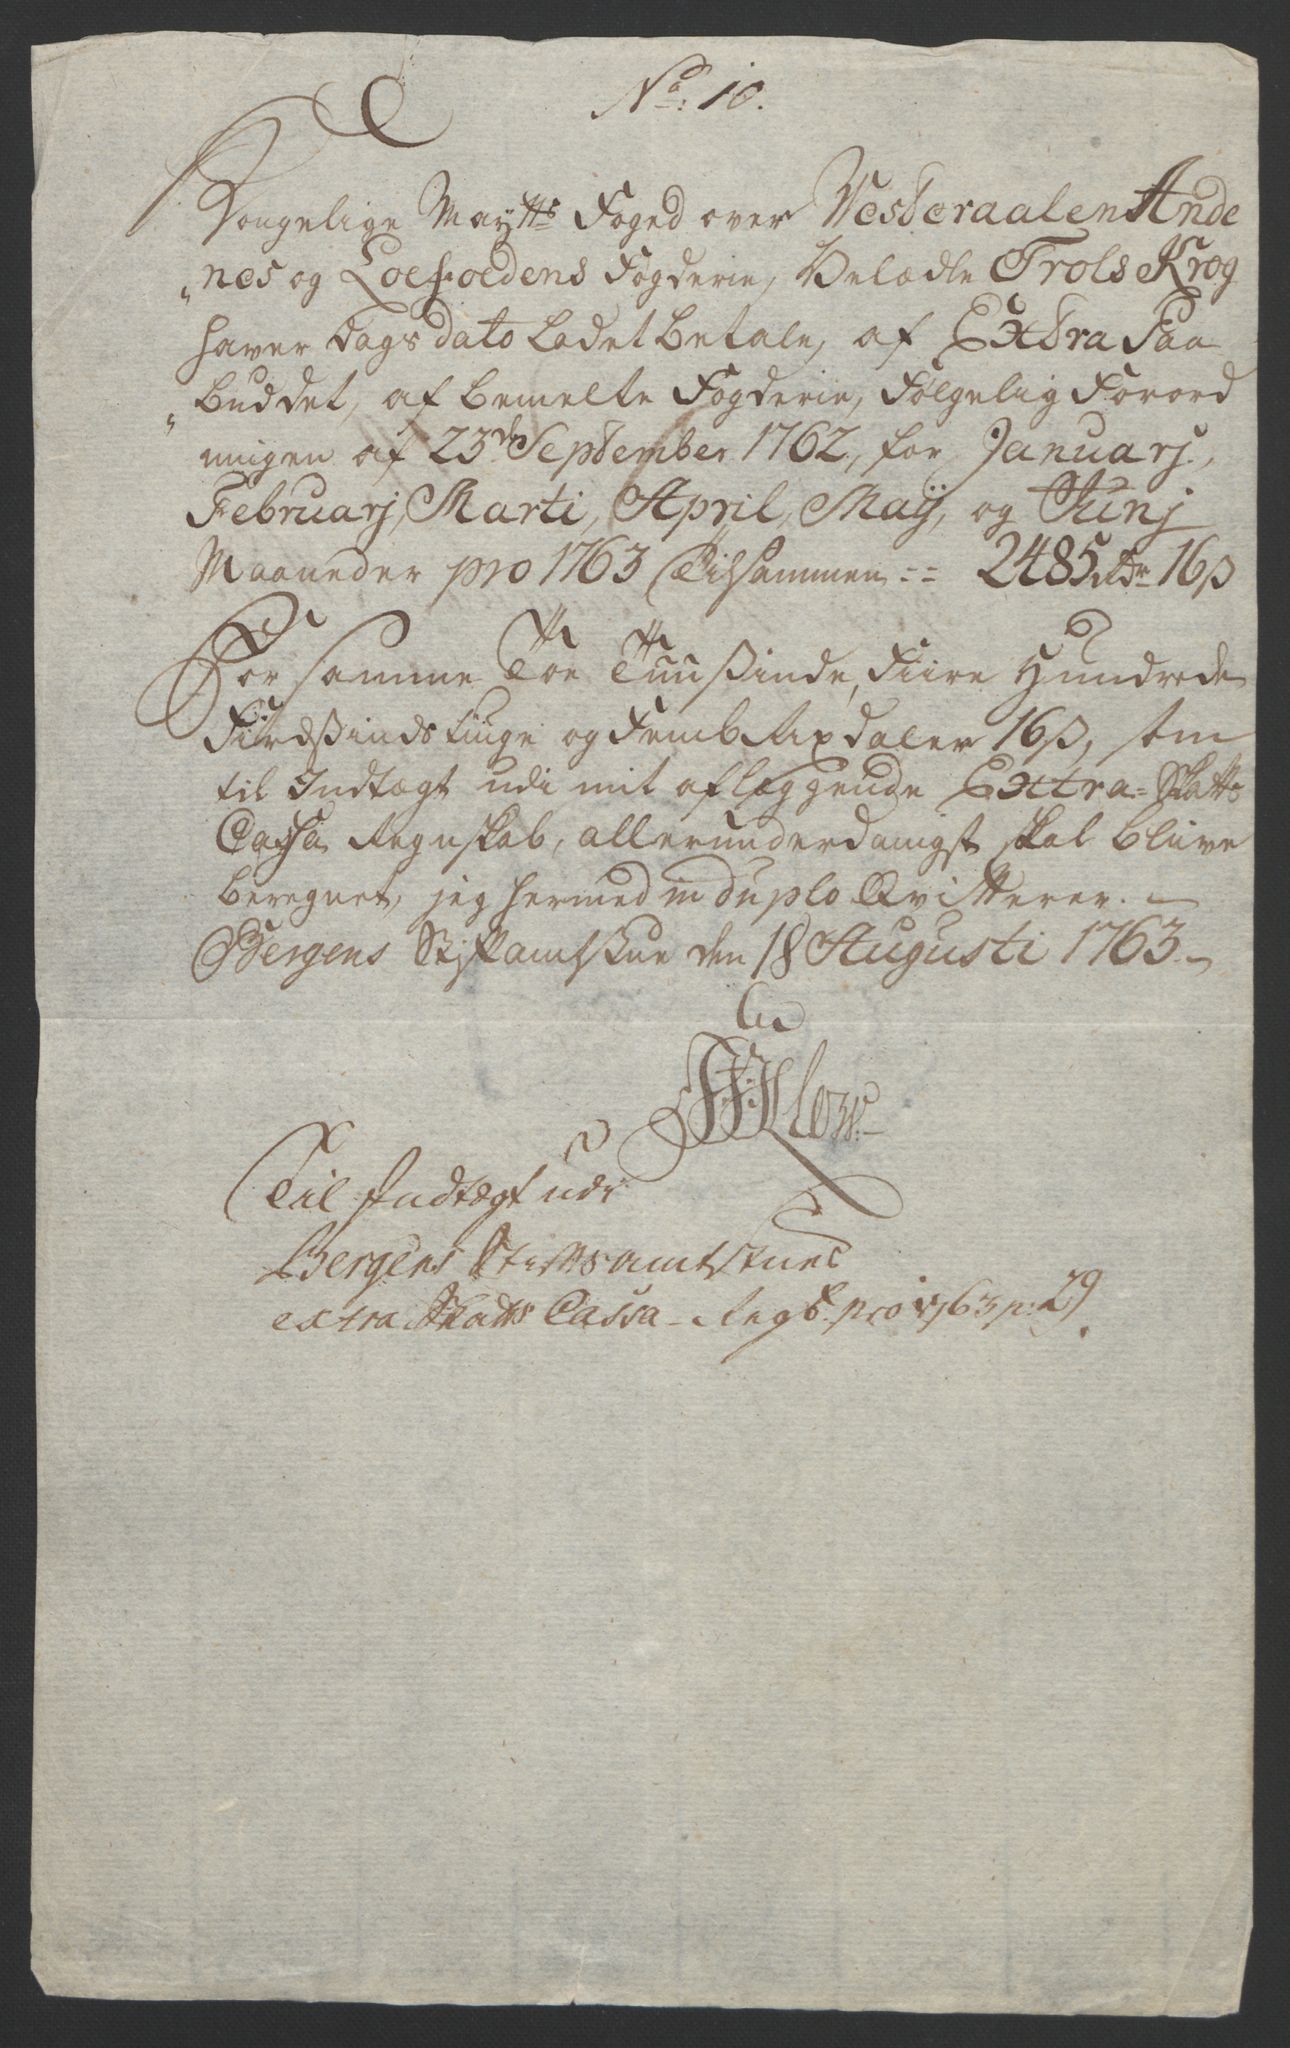 No: 10.
Kongelige Maytts Foged over Vesteraalen Ande
"nes og Loefoedens Fogderie, Velædle Trols Krog
haver Dags dato ladet betale, af Extra Paa
"buddet, af bemelte Fogderie, Følgelig Forord
ningen af 23de September 1762, for Januarj,
Februarj, Marti, April, Maij, og Junj
Maaneder pro 1763 Tilsammen == 2485 Rdr 16 ß
For samme Toe Tuusinde, Fiire Hundrede
Fiirdsindstiuge og Femb Rixdaler 16 ß, som
til Indtægt udi mit aflæggende Extra-Skatts
Cassa Regnskab, allerunderdanigst skal blive
beregnet, jeg hermed in duplo Qvitterer.
Bergens Stiftamtstue den 18 Augusti 1763.
Til Indtægt udi
Bergens Stiftsamtstues
extra Skatts Cassa-Regsk. pro 1763 p: 29.